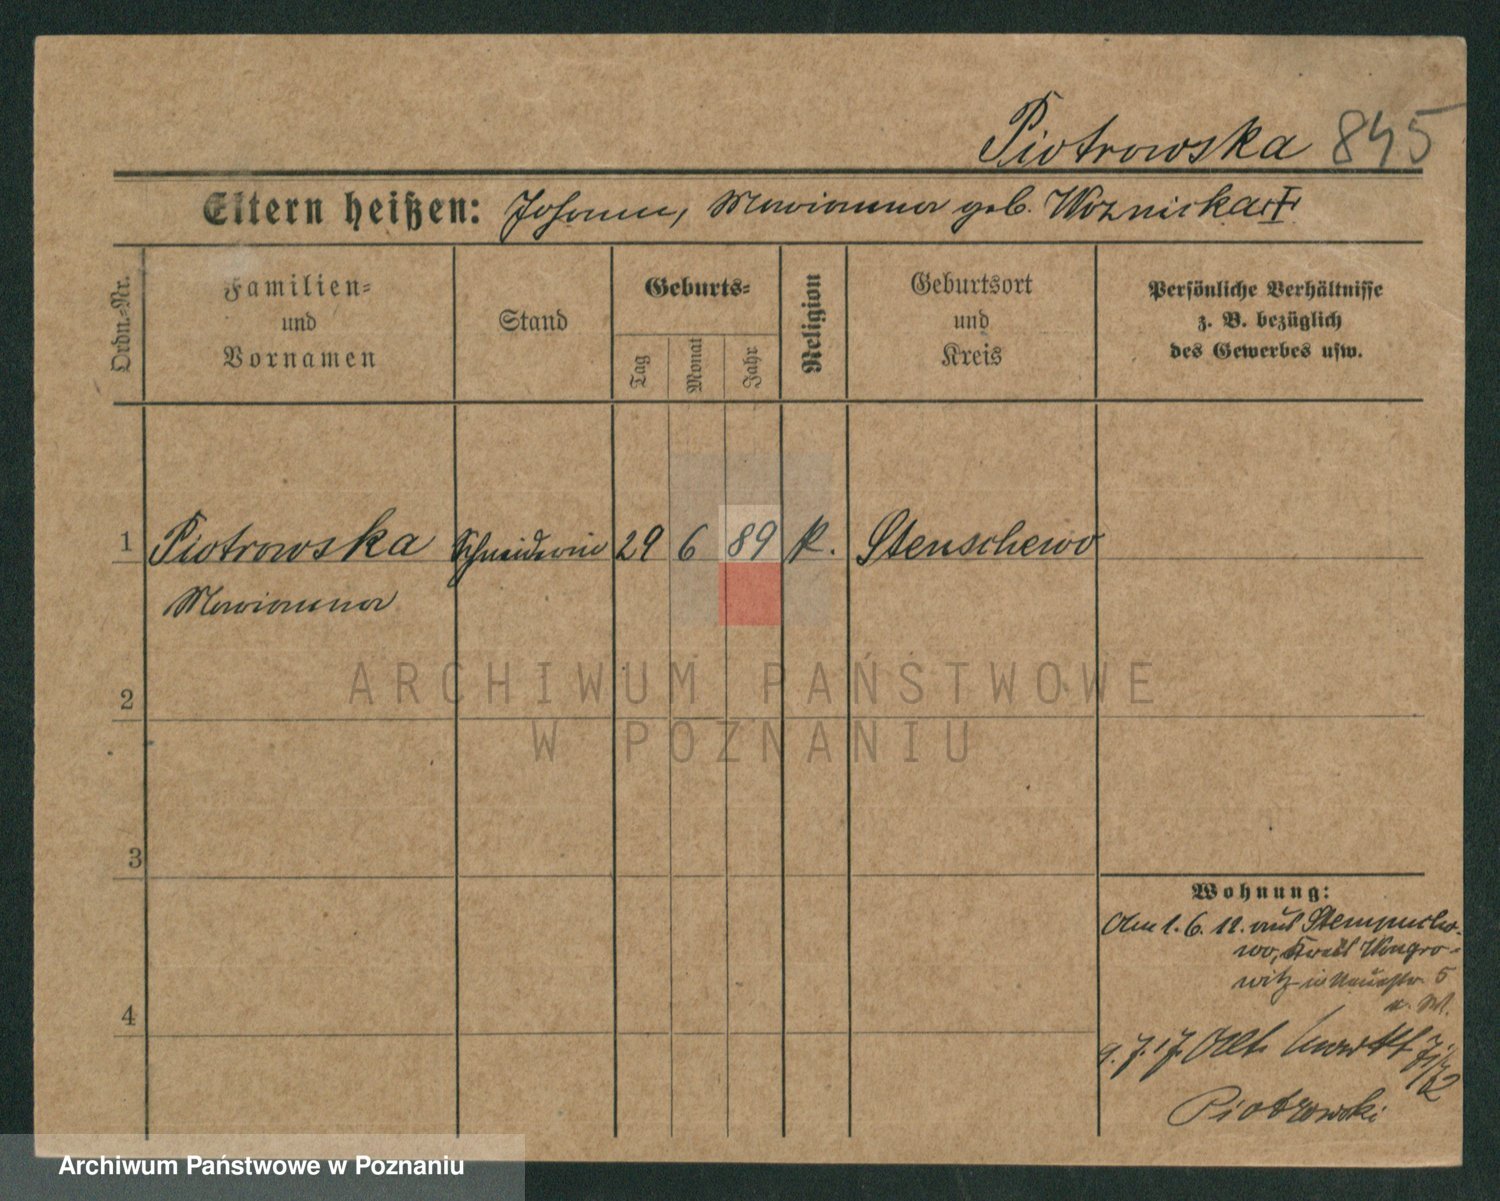 Piotrowska 845
Eltern heißen: Johann, Marianna geb. Woznicka
Ordn.=Nr.
Familien=
und
Vornamen
Stand
Geburts=
Tag
Monat
Jahr
Religion
Geburtsort
und
Kreis
Persönliche Verhältnisse
z. B. bezüglich
des Gewerbes usw.
1 Piotrowska Schneiderin 29 6 89 k. Stenschewo
Marianna
2
ARCHIWUM PAŃSTWOWE
W POZNANIU
3
Wohnung:
Am 1. 6. 12. aus Stempucho-
wo, Kreis Wongro-
witz in 5
4
Alt Markt
Piotrowski
Archiwum Państwowe w Poznaniu